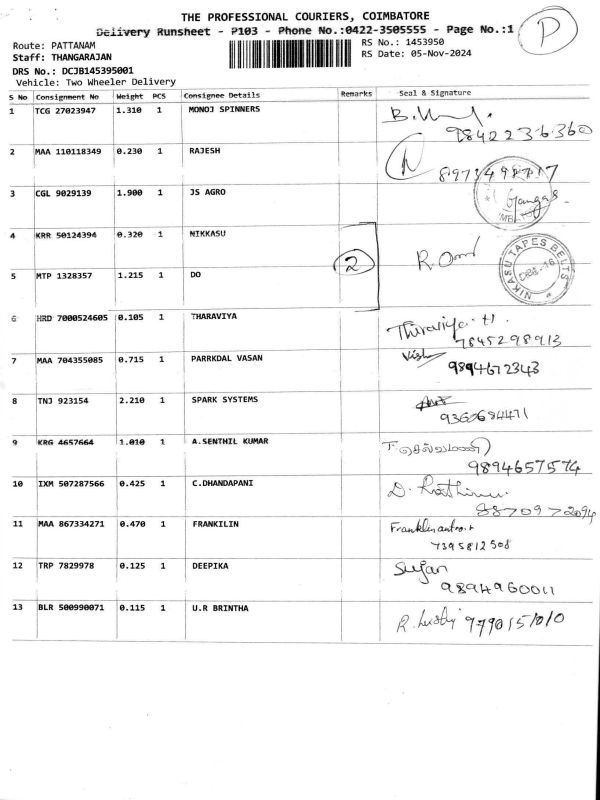 THE PROFESSIONAL COURIERS, COIMBATORE
Delivery Runsheet - P103 - Phone No.:0422-3505555 - Page No.:1
P
Route: PATTANAM
RS No.: 1453950
Staff: THANGARAJAN
RS Date: 05-Nov-2024
DRS No.: DCJB145395001
Vehicle: Two Wheeler Delivery
S No Consignment No Weight PCS Consignee Details Remarks Seal & Signature
1 TCG 27023947 1.310 1 MONOJ SPINNERS
9842236360
2 MAA 110118349 0.230 1 RAJESH
8973498717
3 CGL 9029139 1.900 1 JS AGRO
4 KRR 50124394 0.320 1 NIKKASU
2
NIKASU TAPES BELTS
5 MTP 1328357 1.215 1 DO
6 HRD 7000524605 0.105 1 THARAVIYA Thiraviya. H
7845298913
7 MAA 704355085 0.715 1 PARRKDAL VASAN
9894672343
8 TNJ 923154 2.210 1 SPARK SYSTEMS
9 KRG 4657664 1.010 1 A.SENTHIL KUMAR
9894657574
10 IXM 507287566 0.425 1 C.DHANDAPANI
8870972094
11 MAA 867334271 0.470 1 FRANKILIN
7395812508
12 TRP 7829978 0.125 1 DEEPIKA Sujan
9894960011
13 BLR 500990071 0.115 1 U.R BRINTHA
9790151010